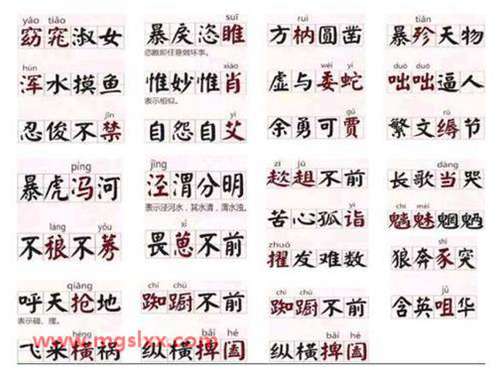 yǎo tiǎo
窈窕淑女
hún
浑水摸鱼
jīn
忍俊不禁
píng
暴虎冯河
láng yǒu
不稂不莠
qiāng
呼天抢地
表示碰、撞。
hèng
飞来横祸
suī
暴戾恣睢
恣睢即任意做坏事。
xiào
惟妙惟肖
表示相似。
yì
自怨自艾
jīng
泾渭分明
表示泾河水，其水清，渭水浊。
xǐ
畏葸不前
chí chú
踟蹰不前
bǎi hé
纵横捭阖
ruì
方枘圆凿
wēi yí
虚与委蛇
gǔ
余勇可贾
zī jū
趑趄不前
yì
苦心孤诣
zhuó
擢发难数
chí chú
踟蹰不前
bǎi hé
纵横捭阖
tiǎn
暴殄天物
duō duō
咄咄逼人
rù
繁文缛节
dàng
长歌当哭
chī mèi
魑魅魍魉
shǐ
狼奔豕突
jǔ
含英咀华
www.mgslxx.com